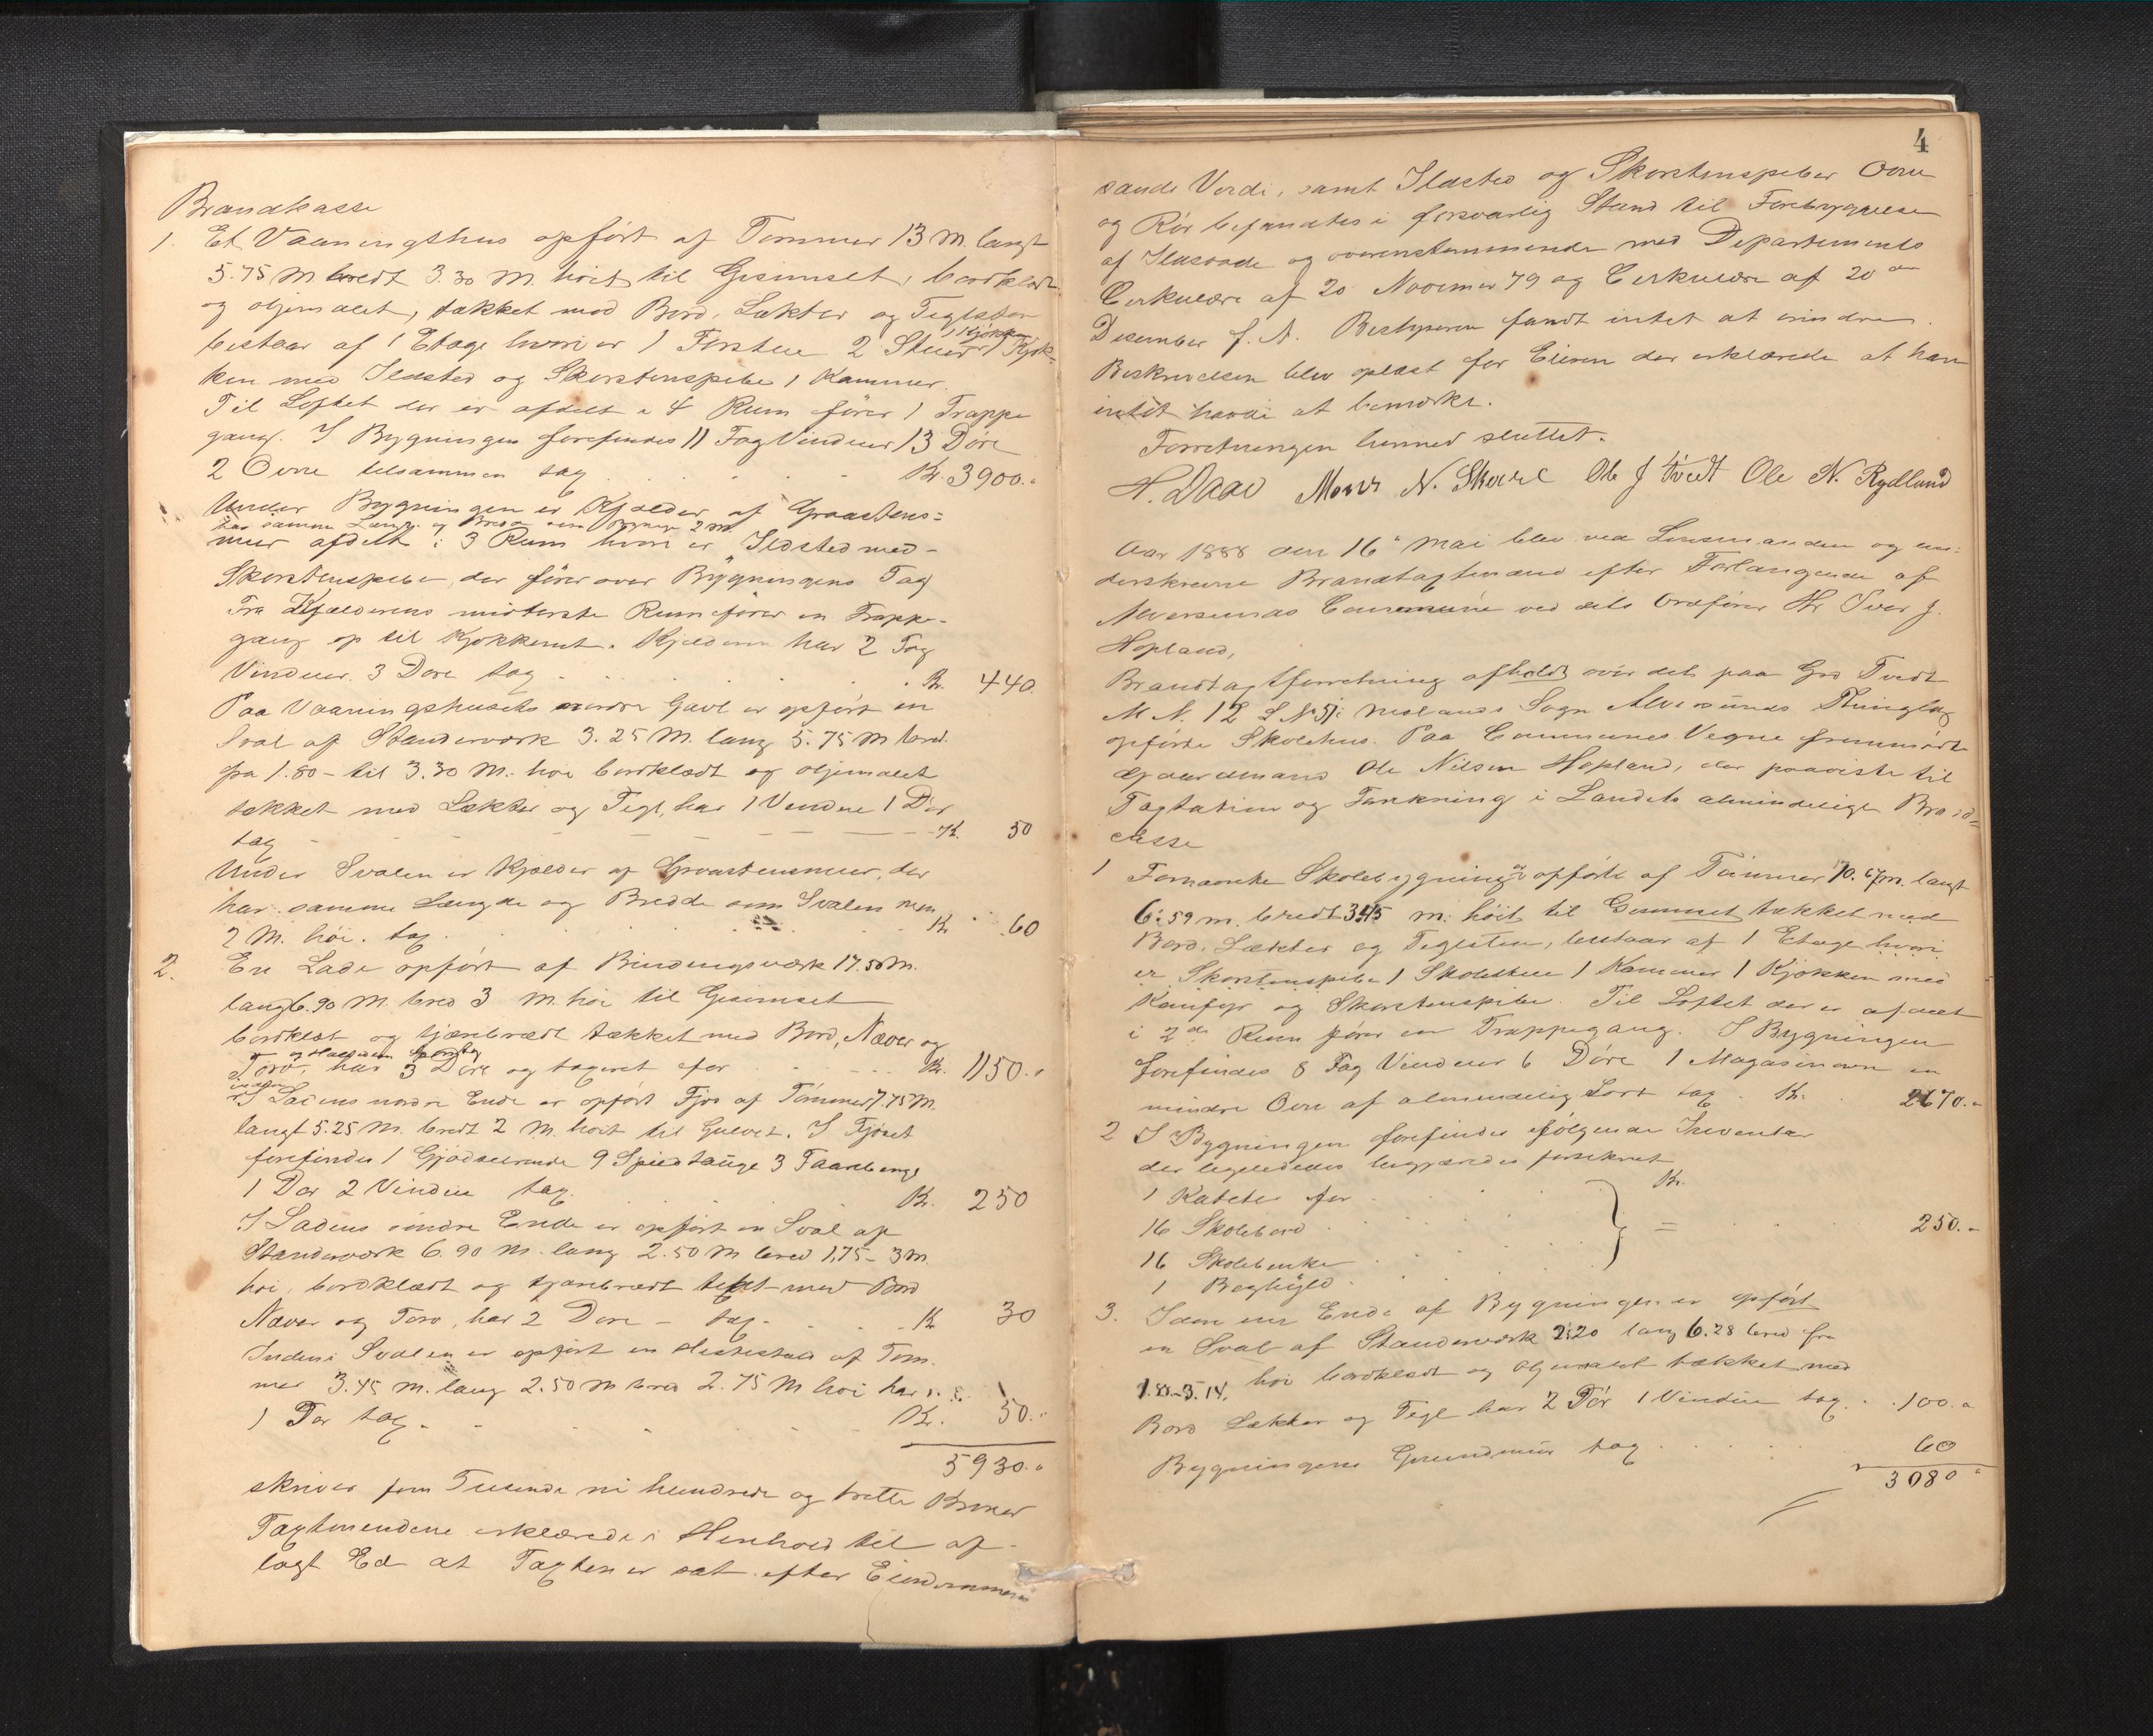 Brandkasse
1. Et Vaaningshus opført af Tømmer 13 M. langt
5.75 M bredt 3.30 M. høit til Gesimset, bordklædt
og oljemalet, tækket med Bord, Lækter og Teglsten
bestaar af 1 Etage hvori er 1 Forstue 2 Stuer 1 Kjøk-
ken med Ildsted og Skorstenspibe 1 Kammer.
Til Loftet der er afdelt i 4 Rum fører 1 Trappe
gang. I Bygningen forefindes 11 Fag Vinduer 13 Døre
2 Ovne tilsammen tax. Kr. 3900.
Under Bygningen er Kjælder af Graastens=
har samme Længde og Bredde som Bygningen 2 M.
muur afdelt i 3 Rum hvori er Ildsted med-
Skorstenspibe, der fører over Bygningens Tag
Fra Kjælderens midterste Rum fører en Trappe-
gang op til Kjøkkenet. Kjælderen har 2 Fag
Vinduer. 3 Døre tax. Kr. 440.
Paa Vaaningshusets nordre Gavl er opført en
Sval af Standerværk 3.25 M. lang 5.75 M bred.
fra 1.80 - til 3.30 M. høi bordklædt og oljemalet
tækket med Lækter og Tegl, har 1 Vindue 1 Dør
tax - Kr. 50
Under Svalen er Kjælder af Graastensmuur, der
har samme Længde og Bredde som Svalen men
2 M. høi. tax. Kr. 60
2. En Lade opført af Bindingsværk 17.50 M.
lang 6.90 M. bred 3 M. høi til Gesimset
bordklædt og tjærebrædt tækket med Bord, Næver og
Torv, har 3 Døre og taxeret for Kr. 1150.
I Ladens nordre Ende er opført Fjøs af Tømmer 7.75 M.
langt 5.25 M. bredt 2 M. høit til Gulvet. I Fjøset
forefindes 1 Gjødselrende 9 Spiltauge 3 Faarebinge
1 Dør 2 Vindue tax. Kr. 250
I Ladens søndre Ende er opført en Sval af
Standerværk 6.90 M. lang 2.50 M bred 1.75 - 3 M.
høi, bordklædt og tjærebrædt tækt med Bord
Næver og Torv, har 2 Døre - tax. Kr. 30
Inden i Svalen er opført en Hestestald af Tøm-
mer 3.45 M. lang 2.50 M bred 2.75 M høi har
1 Dør tax. Kr. 50.
5930.
skriver fem Tusende ni hundrede og trette Kroner
Taxtmændene erklærede i Henhold til af-
lagt Ed at Taxten er sat efter Eiendommens
4
sande Verdi, samt Ildsted og Skorstenspiber Ovne
og Rør befandtes i forsvarlig Stand til Forebyggelse
af Ildsvaade og overenstemmende med Departements
Cirkulære af 20 November 79 og Cirkulære af 20de
Desember f. A. Bestyreren fandt intet at erindre.
Beskrivelsen blev oplæst for Eieren der erklærede at han
intet havde at bemærke.
Forretningen hermed sluttet.
H. Daae Mons N. Skaare Ole J Tvedt Ole N. Rydland
Aar 1888 den 16 Mai blev ved Lensmanden og un-
derskrevne Brandtaxtmænd efter Forlangende af
Alversunds Commune ved dets Ordfører Hr Iver J.
Hopland,
Brandtaxtforretning afholdt over det paa Grd Tvedt
M N. 12 L N 51 i Meslands Sogn Alversunds Thinglag
opførte Skolehus. Paa Communes Vegne fremmødte
Gjaardmand Ole Nilsen Hopland, der paaviste til
Taxtation og Forsikring i Landets almindelige Brand-
casse
1 Fornævnte Skolebygning er opført af Tømmer 10.67 m. langt
6.59 m. bredt 3.45 m. høit til Gesimset tækket med
Bord, Lækter og Teglsten, bestaar af 1 Etage hvori
er Skorstenspibe 1 Skolestue 1 Kammer 1 Kjøkken med
Komfyr og Skorstenspibe. Til Loftet der er afdelt
i 2de Rum fører en Trappegang. I Bygningen
forefindes 8 Fag Vinduer 6 Døre 1 Magasinovn en
mindre Ovn af almindelig Sort tax. Kr. 2670.
2 I Bygningen forefindes følgende Inventar
der ligeledes begjæredes forsikret
1 Kateter for Kr.
16 Skolebord = 250.
16 Skolebenke
1 Boghyld
3. I den ene Ende af Bygningen er opført
en Sval af Standerværk 2.20 lang 6.28 bred fra
1.83-3.14, høi bordklædt og oljemalet tækket med
Bord Lækter og Tegl har 2 Dør 1 Vindue tax. 100.
Bygningens Grundmur tax 60
3080